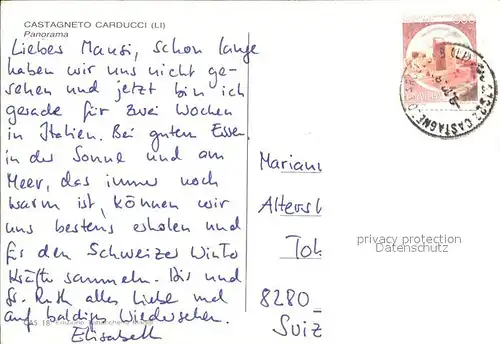 CASTAGNETO CARDUCCI (LI)
Panorama
Liebes Mausi, schon lange
haben wir uns nicht ge-
sehen und jetzt bin ich
gerade für zwei Wochen
in Italien. Bei gutem Essen,
in der Sonne und am
Meer, das immer noch
warm ist, können wir
uns bestens erholen und
für den Schweizer Winter
Kräfte sammeln. Dir und
Sr. Ruth alles Liebe und
auf baldiges Wiedersehen.
Elisabeth
Mariann
Altersh
Tob
8280
Suiz
privacy protection
Datenschutz
CAS 18